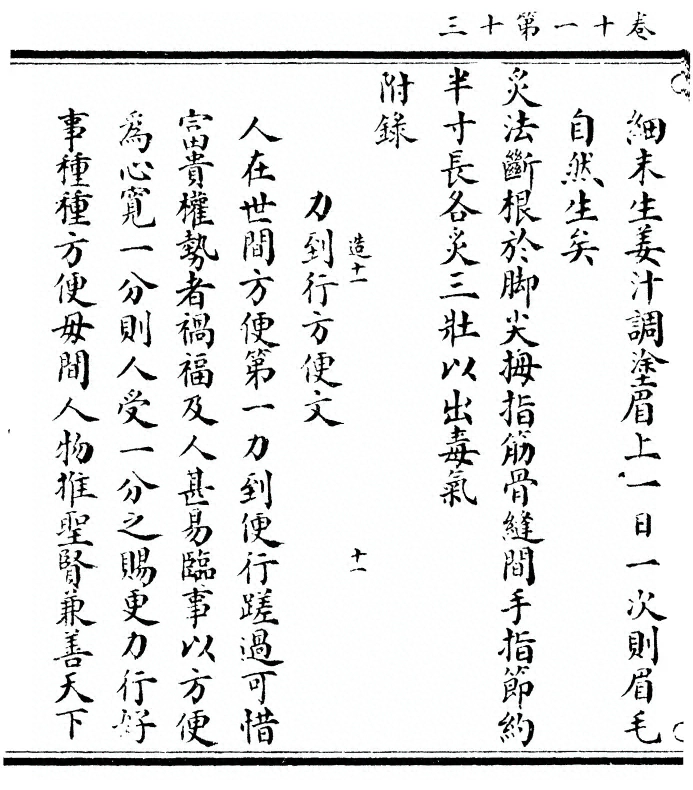 三十第一十卷
細末生姜汁調塗眉上一日一次則眉毛
自然生矣
炙法斷根於脚尖拇指筋骨縫間手指節約
半寸長各炙三壯以出毒氣
附錄
造十一
十一
力到行方便文
人在世間方便第一力到便行蹉過可惜
富貴權勢者禍福及人甚易臨事以方便
為心寬一分則人受一分之賜更力行好
事種種方便毋間人物推聖賢兼善天下